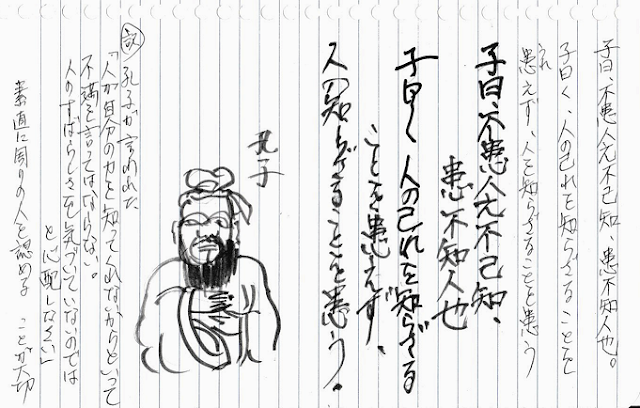 子曰、不患人之不己知、患不知人也。
子曰く、人の己れを知らざることを
うれ
患えず、人を知らざることを患う
子曰、不患人之不己知、
患不知人也
子曰く、人の己れを知らざる
ことを患えず、
人の知らざることを患う。
孔子
訳 孔子が言われた
「人が自分の力を知ってくれないからといって
不満を言ってはならない。
人のすばらしさを気づいていないのでは
と心配しなさい」
素直に周りの人を認める ことが大切